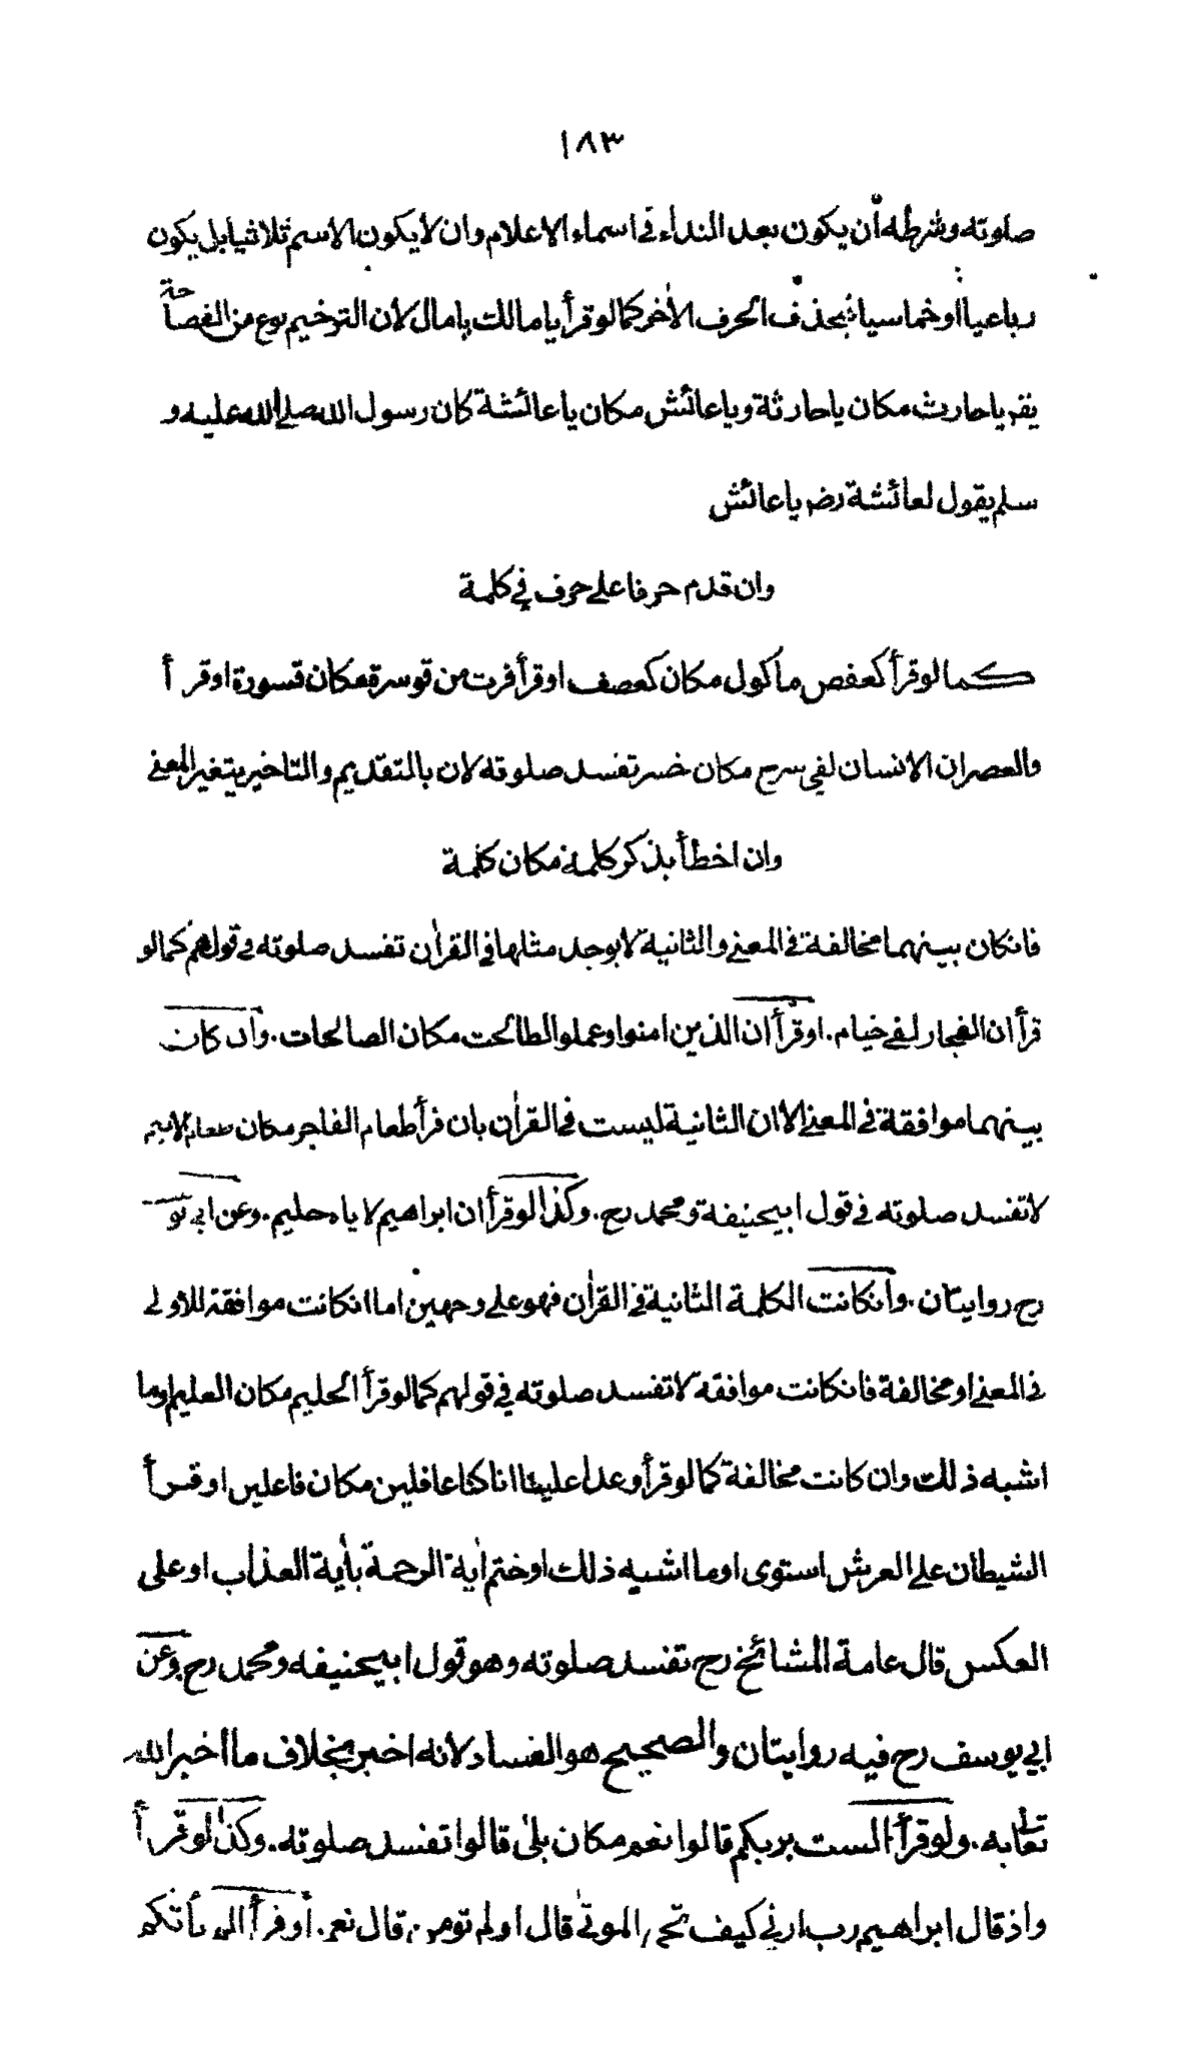 ١٨٣
صلوته وشرطه أن يكون بعد النداء في اسماء الاعلام وان لا يكون الاسم ثلاثيا بل يكون
رباعيا او خماسيا فبحذف الحرف الاٰخر كما لو قرأ يا مالك يا مال لان الترخيم نوع من الفصاحة
يقم يا حارث مكان يا حارثة ويا عائش مكان يا عائشة كان رسول الله صلى الله عليه و
سلم يقول لعائشة رضه يا عائش
وان قدم حرفا على حرف في كلمة
كما لو قرأ كعفص ماكول مكان كعصف او قرأ فرت من قوسرة مكان قسورة او قرأ
والعصر ان الانسان لفي سرخ مكان خسر تفسد صلوته لان بالتقديم والتاخير يتغير المعنى
وان اخطأ بذكر كلمة مكان كلمة
فانكان بينهما مخالفة في المعنى والثانية لا يوجد مثلها في القراٰن تفسد صلوته في قولهم كما لو
قرأ ان الفجار لفي خيام. او قرأ ان الذين امنوا وعملوا الطالحت مكان الصالحات. وان كان
بينهما موافقة في المعنى الا ان الثانية ليست في القراٰن بان قرأ طعام الفاجر مكان طعام الاثيم
لا تفسد صلوته في قول ابيحنيفة ومحمد رح. وكذا لو قرأ ان ابراهيم لاياه حليم. وعن ابي يو
رح روايتان. وانكانت الكلمة الثانية في القراٰن فهو على وجهين اما انكانت موافقة للاولى
في المعنى او مخالفة فانكانت موافقه لا تفسد صلوته في قولهم كما لو قرأ الحليم مكان العليم او ما
اشبه ذلك وان كانت مخالفة كما لو قرأ وعدا علينا انا كنا غافلين مكان فاعلين او قرأ
الشيطان على العرش استوى او ما اشبه ذلك او ختم اٰية الرحمة باٰية العذاب او على
العكس قال عامة المشائخ رح تفسد صلوته وهو قول ابيحنيفه ومحمد رح وعن
ابي يوسف رح فيه روايتان والصحيح هو الفساد لانه اخبر بخلاف ما اخبر الله
تعا به. ولو قرأ الست بربكم قالوا نعم مكان بلىٰ قالوا تفسد صلوته. وكذا لو قرأ
واذ قال ابراهيم رب ارني كيف تحي الموتىٰ قال اولم تومن قال نعم. او قرأ الم يأتكم